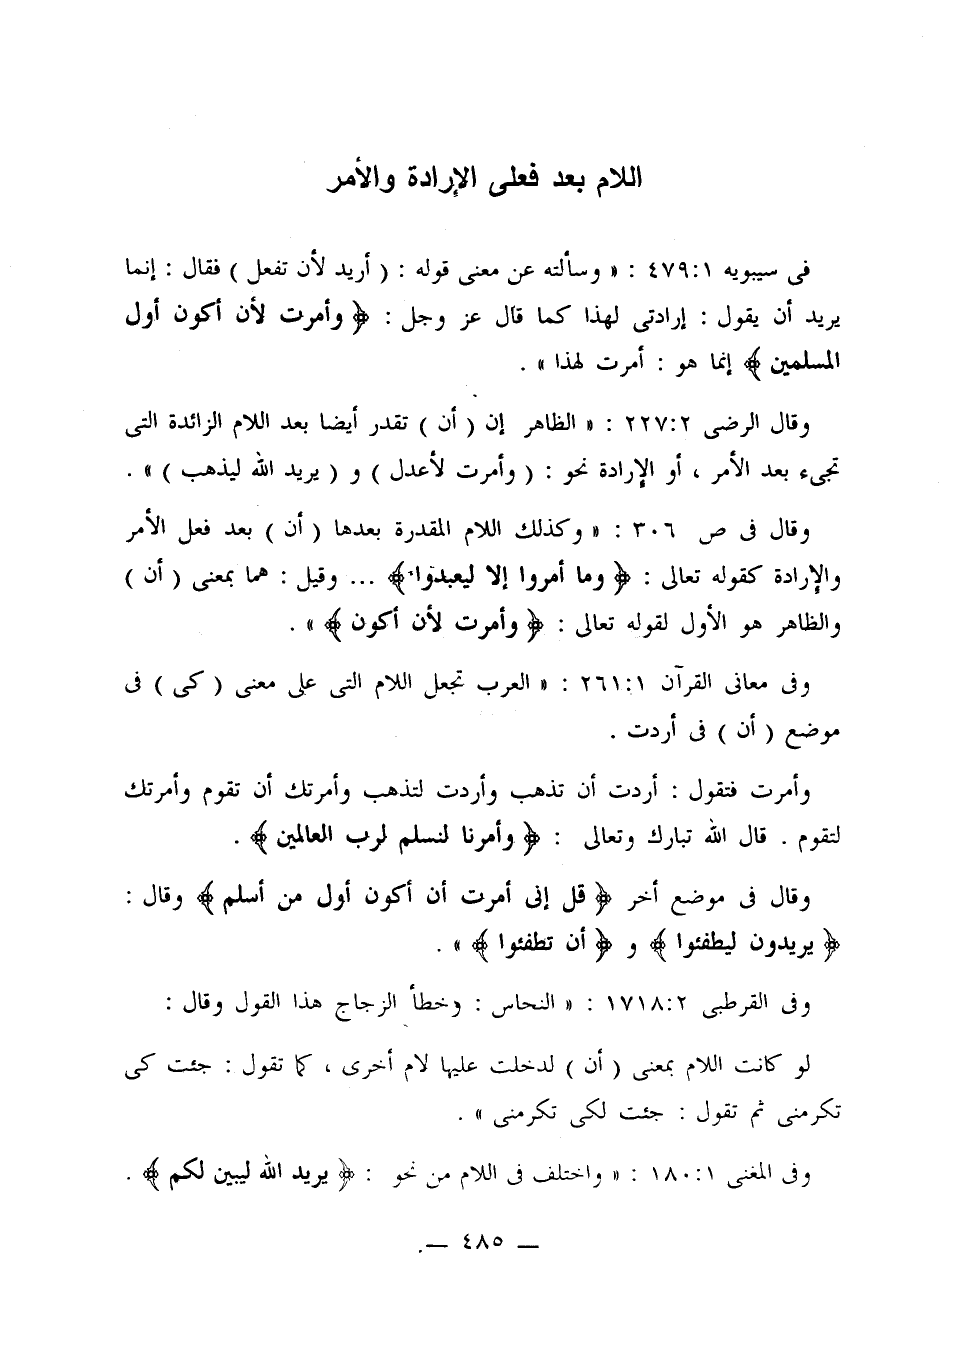 اللام بعد فعلى الإرادة والأمر
فى سيبويه ٤٧٩:١ : « وسألته عن معنى قوله : ( أريد لأن تفعل ) فقال : إنما
يريد أن يقول : إرادتى لهذا كما قال عز وجل : ﴿ وأمرت لأن أكون أول
المسلمين ﴾ إنما هو : أمرت لهذا » .
وقال الرضى ٢٢٧:٢ : « الظاهر إن ( أن ) تقدر أيضا بعد اللام الزائدة التى
تجىء بعد الأمر ، أو الإرادة نحو : ( وأمرت لأعدل ) و ( يريد الله ليذهب ) » .
وقال فى ص ٣٠٦ : « وكذلك اللام المقدرة بعدها ( أن ) بعد فعل الأمر
والإرادة كقوله تعالى : ﴿ وما أمروا إلا ليعبدوا ﴾ ... وقيل : هما بمعنى ( أن )
والظاهر هو الأول لقوله تعالى : ﴿ وأمرت لأن أكون ﴾ » .
وفى معانى القرآن ٢٦١:١ : « العرب تجعل اللام التى على معنى ( كى ) فى
موضع ( أن ) فى أردت .
وأمرت فتقول : أردت أن تذهب وأردت لتذهب وأمرتك أن تقوم وأمرتك
لتقوم . قال الله تبارك وتعالى : ﴿ وأمرنا لنسلم لرب العالمين ﴾ .
وقال فى موضع أخر ﴿ قل إنى أمرت أن أكون أول من أسلم ﴾ وقال :
﴿ يريدون ليطفئوا ﴾ و ﴿ أن تطفئوا ﴾ » .
وفى القرطبى ١٧١٨:٢ : « النحاس : وخطأ الزجاج هذا القول وقال :
لو كانت اللام بمعنى ( أن ) لدخلت عليها لام أخرى ، كما تقول : جئت كى
تكرمنى ثم تقول : جئت لكى تكرمنى » .
وفى المغنى ١٨٠:١ : « واختلف فى اللام من نحو : ﴿ يريد الله ليبين لكم ﴾ .
— ٤٨٥ —